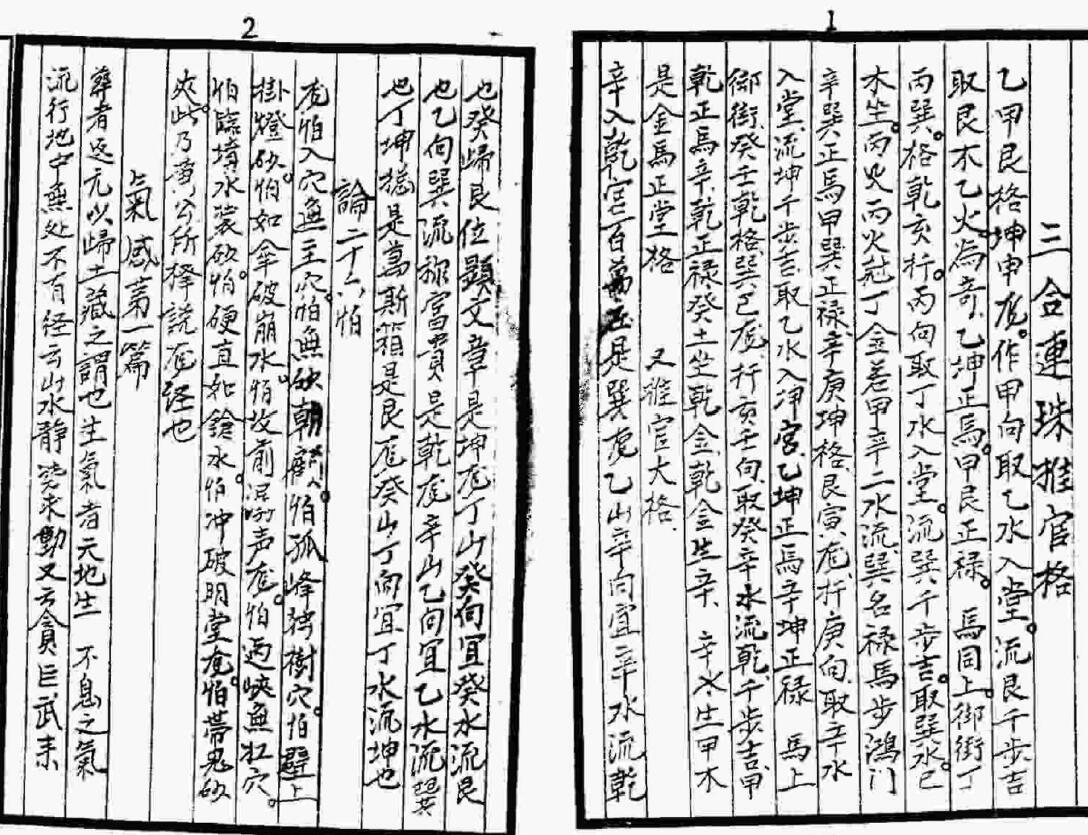 1
三合連珠推官格
乙甲艮格坤申龙。作甲向取乙水入堂。流艮千步吉
取艮木乙火。為奇。乙坤正馬。甲艮正禄。馬同上。御街丁
丙巽。格乾亥行。丙向取丁水入堂。流巽千步吉。取巽水已
木坐。丙火丙火尅丁金差甲辛二水流巽名禄馬步鴻门
辛巽正馬甲巽正禄辛庚坤格艮寅龙行庚向取辛水
入堂流坤千步吉取乙水入坤宫乙坤正馬辛坤正禄 馬上
御街癸壬乾格巽巳龙行亥壬向取癸辛水流乾千步吉甲
乾正馬辛乾正禄癸土坐乾金乾金生辛 辛水生甲木
是金馬正堂格 又推官大格
辛入乾宫百萬庄是巽龙乙山辛向宜辛水流乾
2
也癸歸艮位顯文章是坤龙丁山癸向宜癸水流艮
也乙向巽流称富貴是乾龙辛山乙向宜乙水流巽
也丁坤是萬斯箱是艮龙癸山丁向宜丁水流坤也
論二十六怕
龙怕入穴無主穴。怕無砂朝顧。怕孤峰独樹穴。怕壁上
掛燈砂。怕如傘破崩水。怕坟前泪声龙。怕過峡無扛穴。
怕臨墳水裝砂。怕硬直如鎗水。怕冲破明堂龙。怕帶鬼砂
夾此。乃曹公所择説龙経也
氣感第一篇
葬者返元以歸土藏之謂也生氣者元地生 不息之氣
流行地中無处不有经云山水静势来動又云貪巨武来